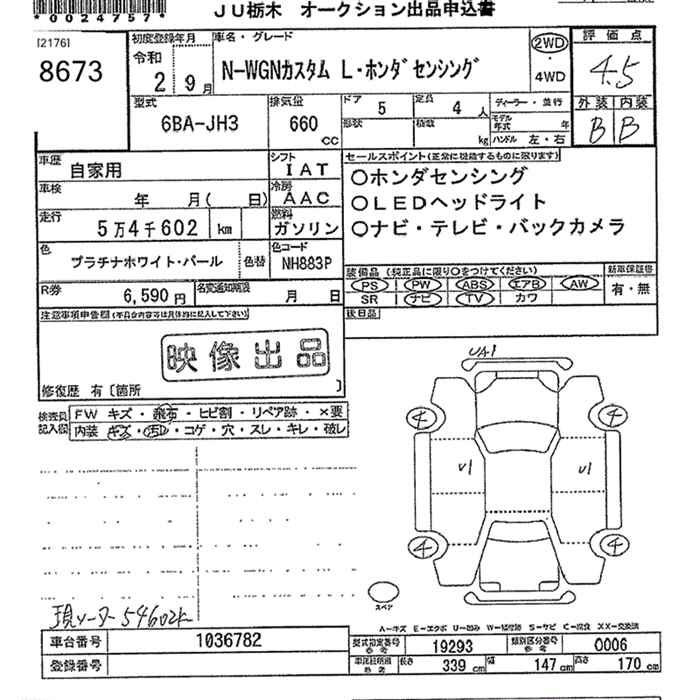 *0024757*
JU栃木 オークション出品申込書
[2176]
8673
初度登録年月
令和
2年 9月
車名・グレード
N-WGNカスタム L・ホンダセンシング
2WD
・
4WD
評価点
4.5
外装 内装
B B
型式
6BA-JH3
排気量
660
cc
ドア
5
定員
4人
形状
積載
kg
ディーラー・並行
モデル年式 年
ハンドル 左・右
車歴
自家用
シフト
IAT
車検
年 月( 日)
冷房
AAC
走行
5万4千602 km
燃料
ガソリン
色
プラチナホワイト・パール
色替
色コード
NH883P
R券
6,590円
名変通知期限
月 日
セールスポイント(正常に機能するものに限ります)
○ホンダセンシング
○LEDヘッドライト
○ナビ・テレビ・バックカメラ
装備品 (純正品に限り○をつけてください)
PS PW ABS エアB AW
SR ナビ TV カワ
新車保証書
有・無
後日品
注意事項申告欄(不具合内容等は具体的に記入して下さい)
映像出品
修復歴 有〔箇所 〕
検査員記入欄
FW キズ・飛石・ヒビ割・リペア跡・×要
内装 キズ・汚れ・コゲ・穴・スレ・キレ・破レ
UA1
4 4
U1 U1
4 4
スペア
現メーター54602K
A-キズ E-エクボ U-凹み W-補修跡 S-サビ C-腐食 XX-交換済
車台番号 1036782
登録番号
型式指定番号 参考 19293
類別区分番号 参考 0006
車両諸元明細 参考 長さ 339cm 幅 147cm 高さ 170cm